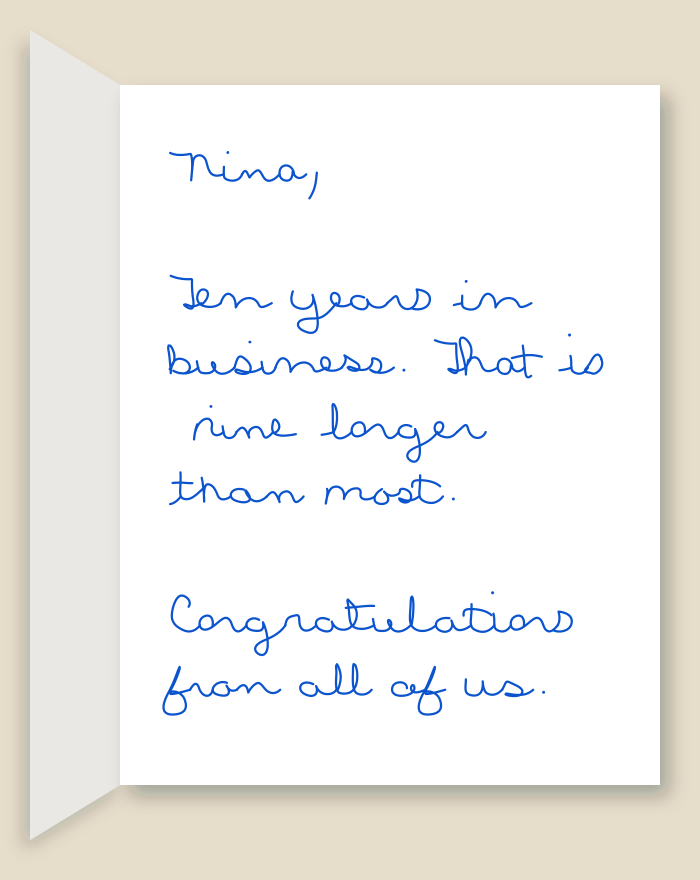 Nina,
Ten years in
business. That is
nine longer
than most.
Congratulations
from all of us.